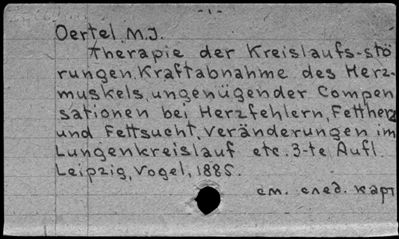 - 1 -
Oertel, M.J.
Therapie der Kreislaufs-stö
rungen, Kraftabnahme des Herz-
muskels, ungenügender Compen
sationen bei Herzfehlern, Fettherz
und Fettsucht, Veränderungen im
Lungenkreislauf etc. 3-te Aufl.
Leipzig, Vogel, 1885.
см. след. карт